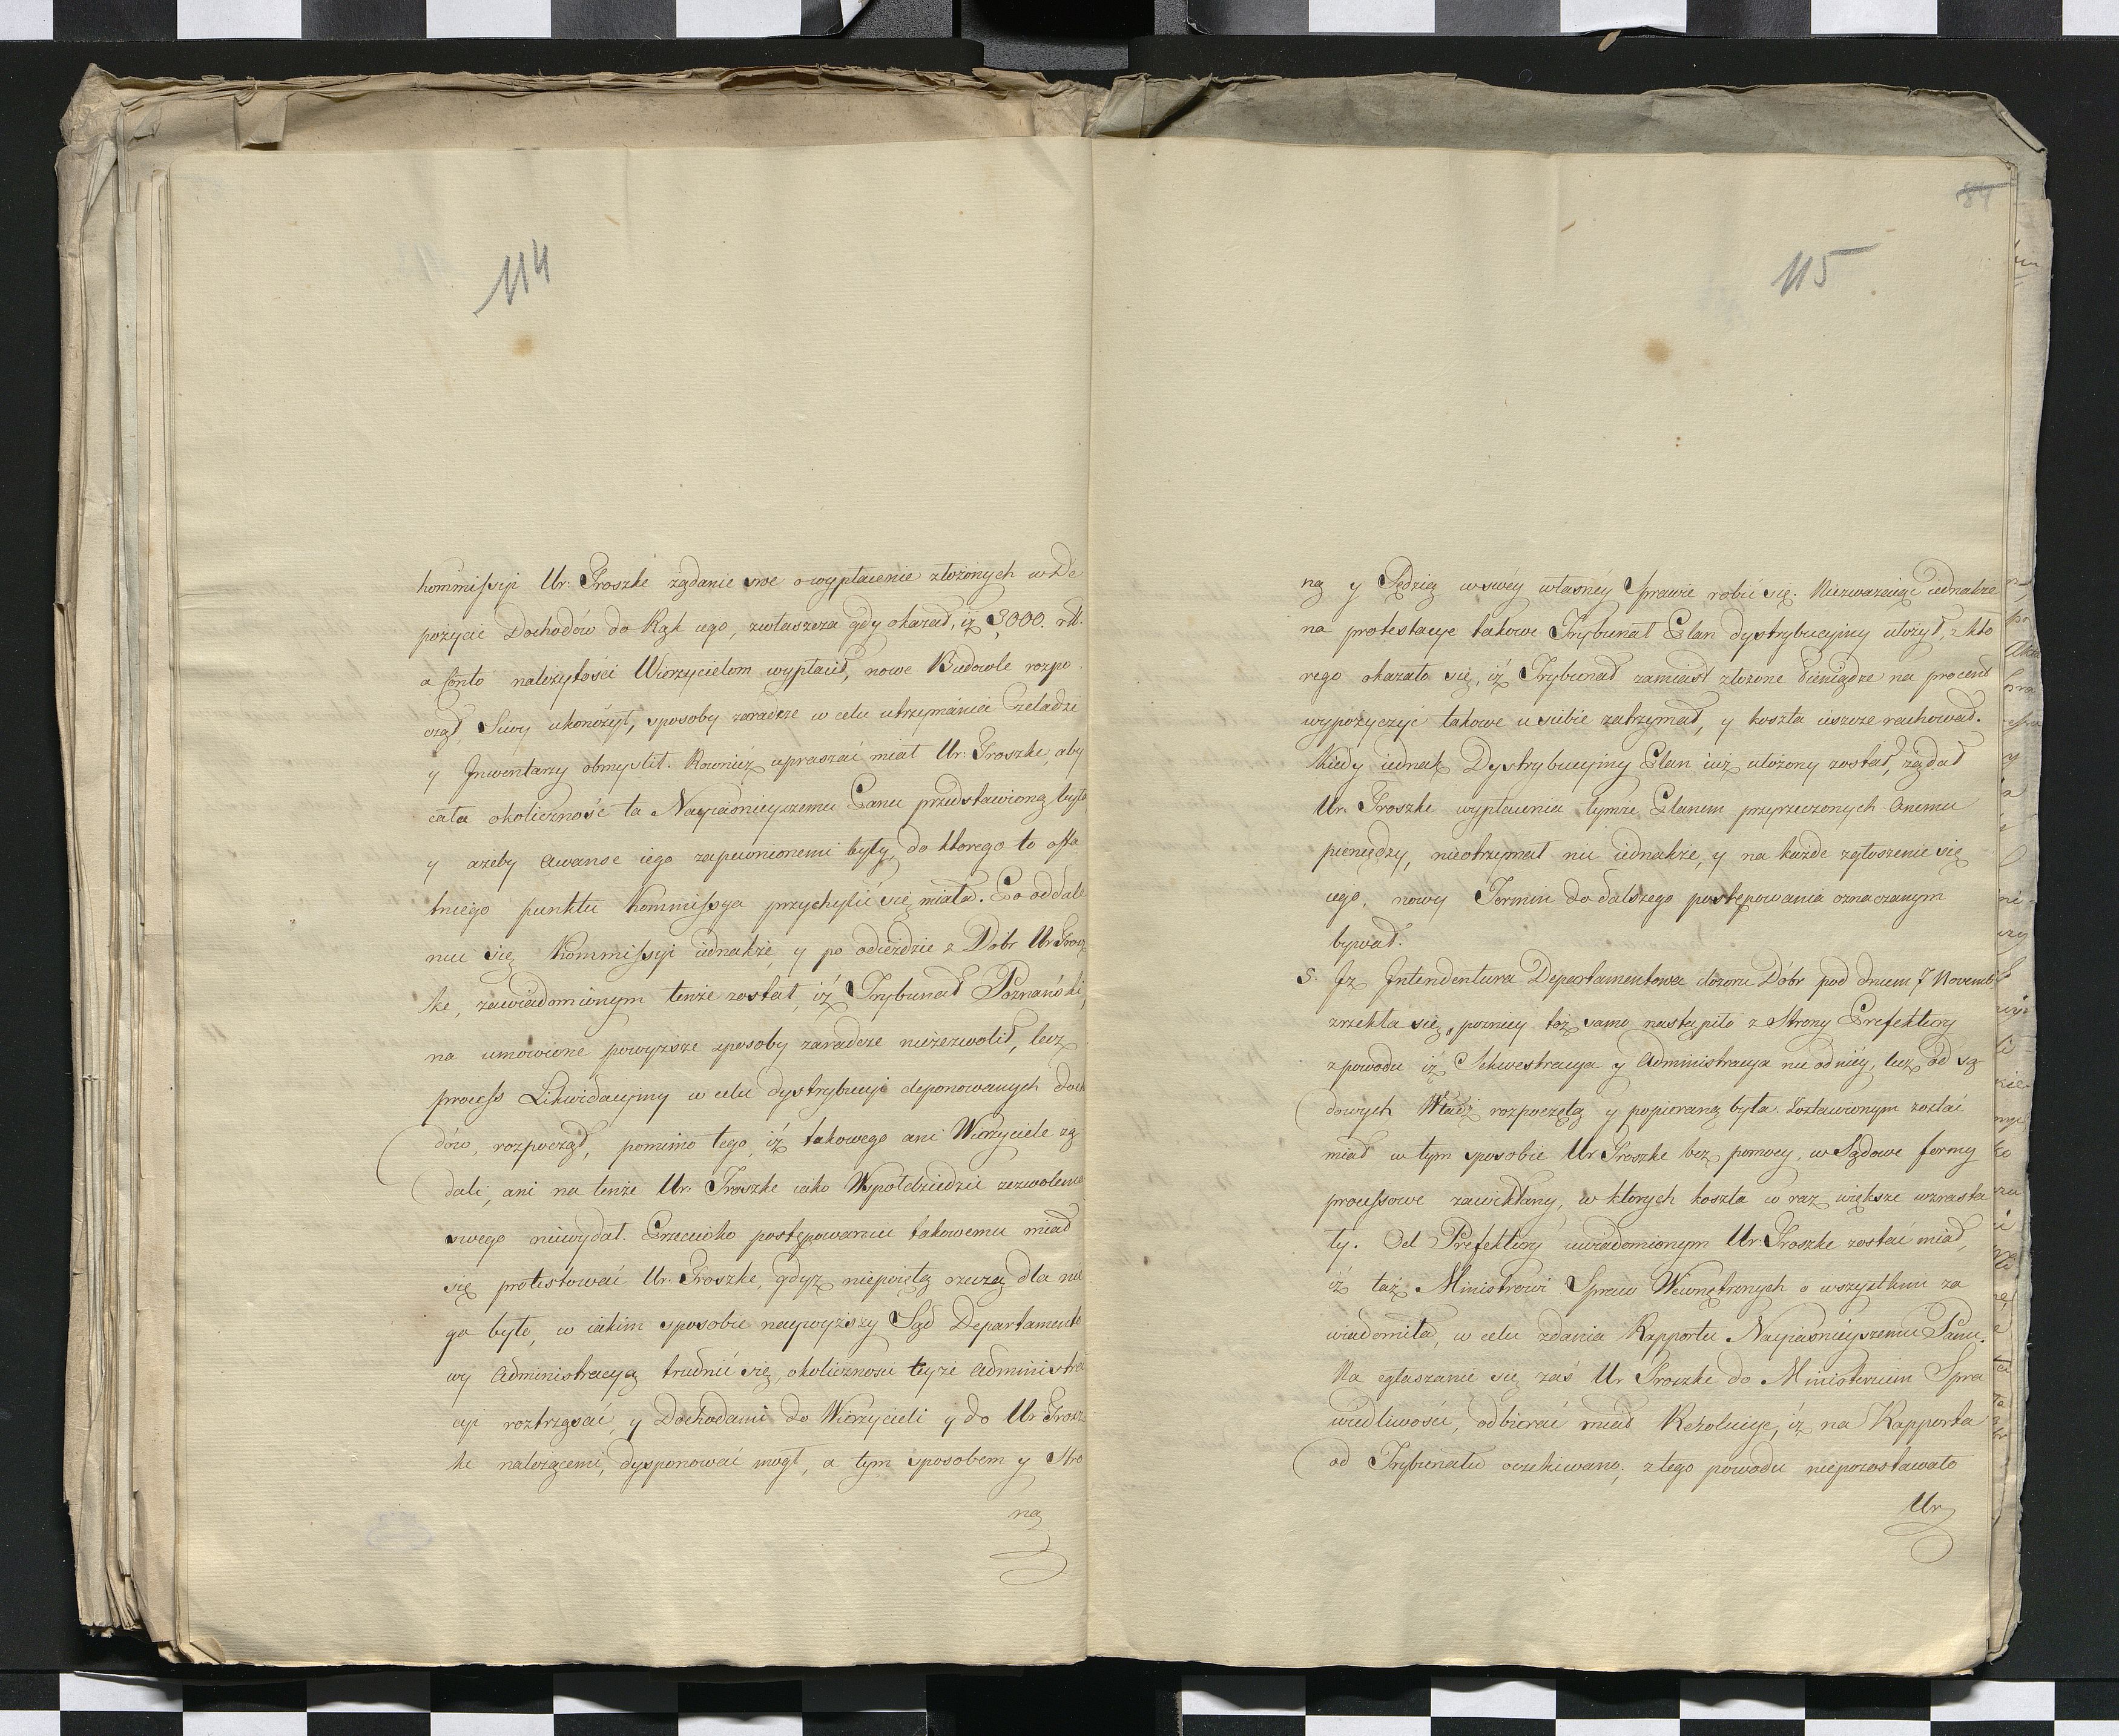 114
kommissyi Ur: Troszke żądanie swe o wypłacenie złożonych w De
pożycie Dochodów do Rąk iego, zwłaszcza gdy okazał, iż 3000. rtl.
a Conto należytości Wierzycielom wypłacił, nowe Budowle rozpo
czął, Siewy ukończył, sposoby zaradcze w celu utrzymania Czeladzi
y Inwentarzy obmyślił. Rownież upraszać miał Ur: Troszke, aby
cała okoliczność ta Nayiaśnieyszemu Panu przedstawioną była
y ażeby Awanse iego zapewnionemi były, do ktorego to osta
tniego punktu Kommissya przychylić się miała. Po oddale
niu się Kommissyi iednakże y po odieździe z Dobr Ur Trosz
ke, zawiadomionym tenże został, iż Trybunał Poznański,
na umowione powyższe sposoby zaradcze niezezwolił, lecz
process Likwidacyiny w celu dystrybucyi deponowanych docho
dów, rozpoczął, pomimo tego, iż takowego ani Wierzyciele żą
dali, ani na tenże Ur: Troszke iako Wspołdziedzic zezwolenia
swego niewydał. Przeciwko postępowaniu takowemu miał
się protestować Ur: Troszke, gdyż niepoiętą rzeczą dla nie
go było, w iakim sposobie naywyższy Sąd Departamento
wy Administracyą trudnić się, okoliczności teyże Administra
cyi roztrząsać, y Dochodami do Wierzycieli y do Ur Trosz
ke należącemi, dysponować mogł, a tym sposobem y Stro
ną
84
115
ną y Sędzią w swéy własnéy Sprawie robić się. Niezważaiąc iednakże
na protestacye takowe Trybunał Plan dystrybucyiny ułożył, z kto
rego okazało się, iż Trybunał zamiast złożone Pieniądze na procent
wypożyczyć takowe u siebie zatrzymał, y koszta ieszcze rachował.
Kiedy iednak Dystrybucyiny Plan iuż ułożony został, żądał
Ur. Troszke wypłacenia tymże Planem przyrzeczonych Onemu
pieniędzy, nieotrzymał nic iednakże, y na każde zgłoszenie się
iego, nowy Termin do dalszego postępowania oznaczanym
bywał.
5. Iż Intendentura Departamentowa dozoru Dóbr pod dniem 7 Novemb
zrzekła się, pozniey toż samo nastąpiło z Strony Prefektury
z powodu iż Sekwestracya y Administracya nie od niéy, lecz od Są
dowych Władz rozpoczętą y popieraną była. Zostawionym zostać
miał w tym sposobie Ur Troszke bez pomocy, w Sądowe formy
processowe zawikłany, w których koszta co raz większe wzrasta
ły. Od Prefektury uwiadomionym Ur. Troszke zostać miał,
iż taż Ministrowi Spraw Wewnętrznych o wszystkim za
wiadomiła, w celu zdania Rapportu Nayiaśnieyszemu Panu.
Na zgłaszanie się zaś Ur Troszke do Ministerium Spra
wiedliwości, odbierać miał Rezolucye, iż na Rapporta
od Trybunału oczekiwano; z tego powodu niepozostawało
Ur